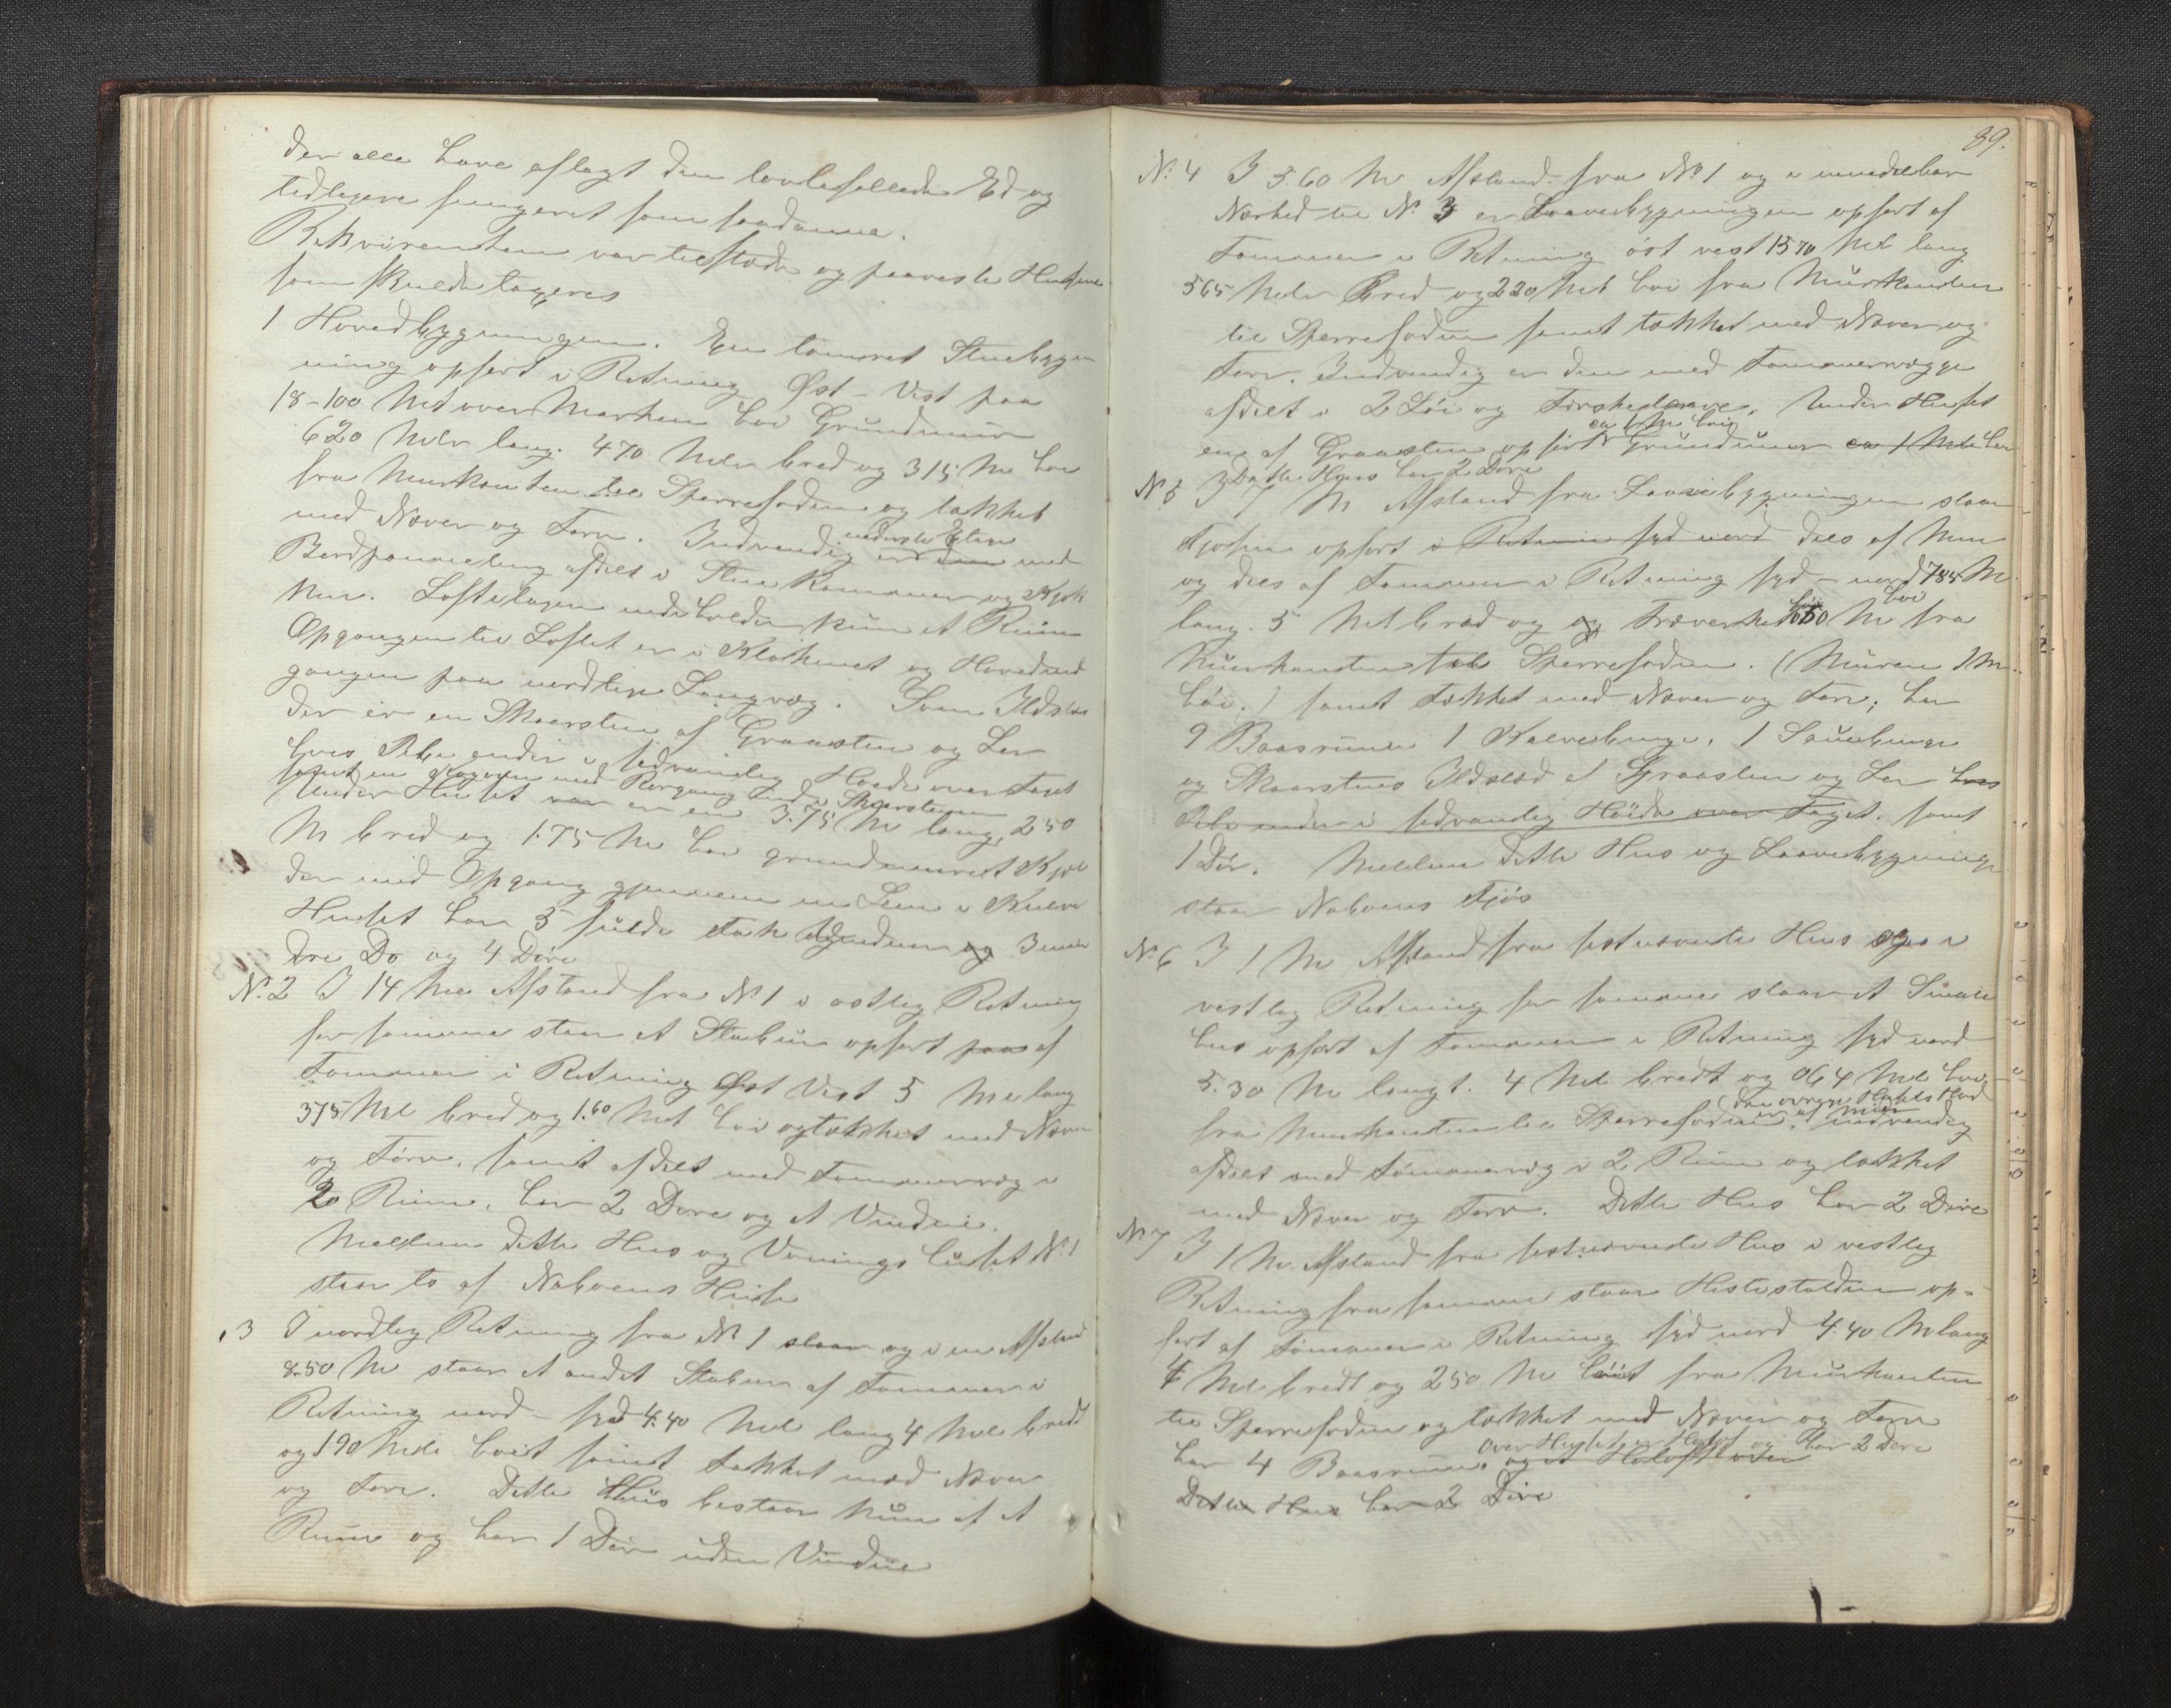 der alle have aflagt den lovbefallede Ed og
tidligere fungeret som saadanne.
Rekvirenten var tilstede og paaviste Husene
som skulde taxeres
1 Hovedbygningen. En tømret Stuebyg
ning opført i Retning Øst - Vest paa
18-100 Met over Marken høi Grundmur
620 Metr lang. 470 Metr bred og 315 M høi
fra Murkanten til Sperrefoden og tækket
med Næver og Torv. Indvendig er den nederste Etage med
Bordpanneling afdelt i Stue Kammer og Kjøk
ken. Loftetagen indeholder kun et Rum
Opgangen til Loftet er i Kjøkkenet og Hovedind
gangen paa nordlige Langvæg. Som Ildsted
der er en Skorsten af Graasten og Ler
hvis Pibe ender i sedvanlig Høide over Taget
samt en Kogeovn med Rørgang ind i Skorstenen
Under Huset er en 3.75 M lang, 250
M bred og 1.75 M høi grundmuret Kjel
der med Opgang gjennem en Lem i
Huset har 5 fulde Fak Vinduer og 3 min
dre Do og 4 Døre
N. 2 I 14 Met Afstand fra N. 1 i østlig Retning
for samme staar et Stabur opført paa af
Tømmer i Retning Øst Vest 5 Me lang
375 Met bred og 1.60 Met høi og tækket med Næver
og Torv, samt afdelt med Tømmervæg i
2 Rum, har 2 Døre og et Vindue.
Mellem dette Hus og Vaaningshuset N. 1
staar to af Naboens Huse
, 3 I nordlig Retning fra N. 1 staar og i en Afstand
8.50 M staar et andet Stabur af Tømmer i
Retning nord - syd 4.40 Met lang 4 Met bredt
og 190 Met høit samt tækket med Næver
og Torv. Dette Hus bestaar kun af et
Rum og har 1 Dør uden Vindue
89.
N. 4 I 3.60 M Afstand fra N. 1 og i umiddelbar
Nærhed til N. 3 er Laavebygningen opført af
Tømmer i Retning øst vest 1570 Met lang
565 Metr bred og 220 Met høi fra Murkanten
til Sperrefoden samt tækket med Næver og
Torv. Indvendig er den med Tømmervægge
afdelt i 2 Løi og Tørskelaave. Under Huset
en af Graasten opført ca 1 M høi Grundmur ca 1 Met høi
Dette Hus har 2 Døre
N. 5 I 7 M Afstand fra Laavebygningen staar
Fjøsen opført i Retning syd nord dels af Mur
og dels af Tømmer i Retning syd - nord 785 M
lang. 5 Met bred og og Træverket M høi fra
Murkanten til Sperrefoden. (Muren 1 M
høi.) samt tækket med Næver og Torv; har
9 Baasrum 1 Kalvebinge, 1 Sauebinge
og Skorstens Ildsted af Graasten og Ler hvis
Pibe ender i sedvanlig Høide over Taget. samt
1 Dør. Mellem dette Hus og Laavebygningen
staar Naboens Fjøs
N. 6 I 1 M Afstand fra sistnævnte Hus og i
vestlig Retning for samme staar et Smale
hus opført af Tømmer i Retning syd nord
5.30 M langt. 4 Met bredt og 064 Met høi
fra Murkanten til Sperrefoden, den øvrige er af Mur indvendig
afdelt med Tømmervæg i 2 Rum og tækket
med Næver og Torv. Dette Hus har 2 Døre
N. 7 I 1 M. Afstand fra sistnævnte Hus i vestlig
Retning fra samme staar Hestestalden op-
ført af Tømmer i Retning syd nord 4.40 M lang
4 Met bredt og 250 M høit fra Murkanten
til Sperrefoden og tækket med Næver og Torv
har 4 Baasrum. Over Huset er Høloft og har 2 Døre
og et Høloft over
Dette Hus har 2 Døre